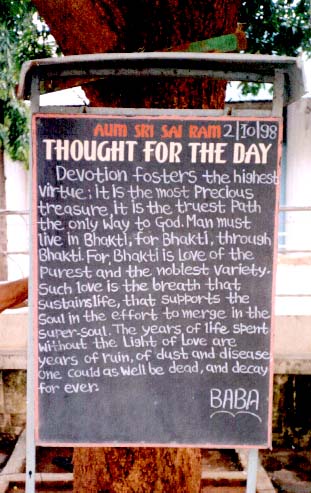 AUM SRI SAI RAM 2/10/98
THOUGHT FOR THE DAY
Devotion fosters the highest
virtue; it is the most Precious
treasure, it is the truest Path
the only Way to God. Man must
live in Bhakti, for Bhakti, through
Bhakti. For, Bhakti is Love of the
Purest and the noblest Variety.
Such love is the breath that
sustains life, that supports the
Soul in the effort to merge in the
super-soul. The years of life spent
Without the Light of Love are
years of ruin, of dust and disease
One could as Well be dead, and decay
for ever.
BABA